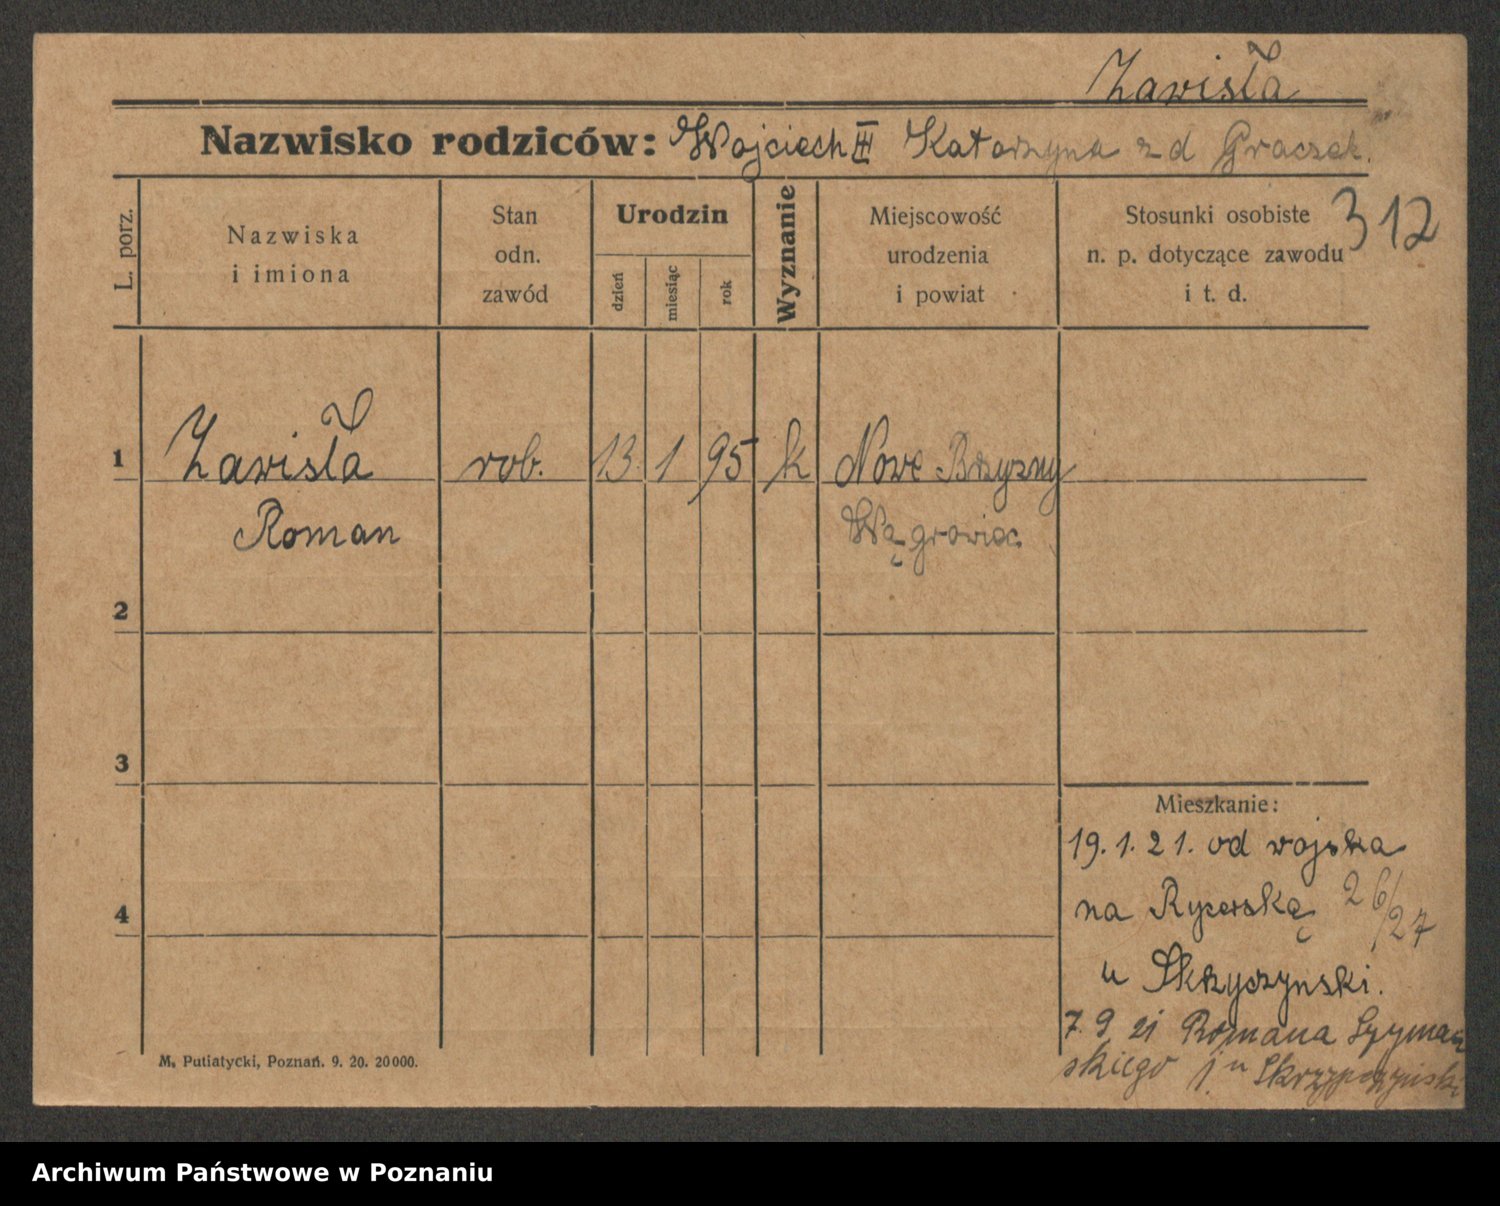 Zawisła
Nazwisko rodziców: Wojciech III Katarzyna z d Graczek.
312
L. porz.
Nazwiska
i imiona
Stan
odn.
zawód
Urodzin
dzień
miesiąc
rok
Wyznanie
Miejscowość
urodzenia
i powiat
Stosunki osobiste
n. p. dotyczące zawodu
i t. d.
1 Zawisła rob. 13. 1 95 k Nowe Brzyzny
Roman Wągrowiec
2
3
Mieszkanie:
19. 1. 21. od wojska
4
na Rycerską 26/27
u Skrzyczynski.
7. 9 21 Romana Szymań
skiego j. u
M. Putiatycki, Poznań. 9. 20. 20000.
Archiwum Państwowe w Poznaniu